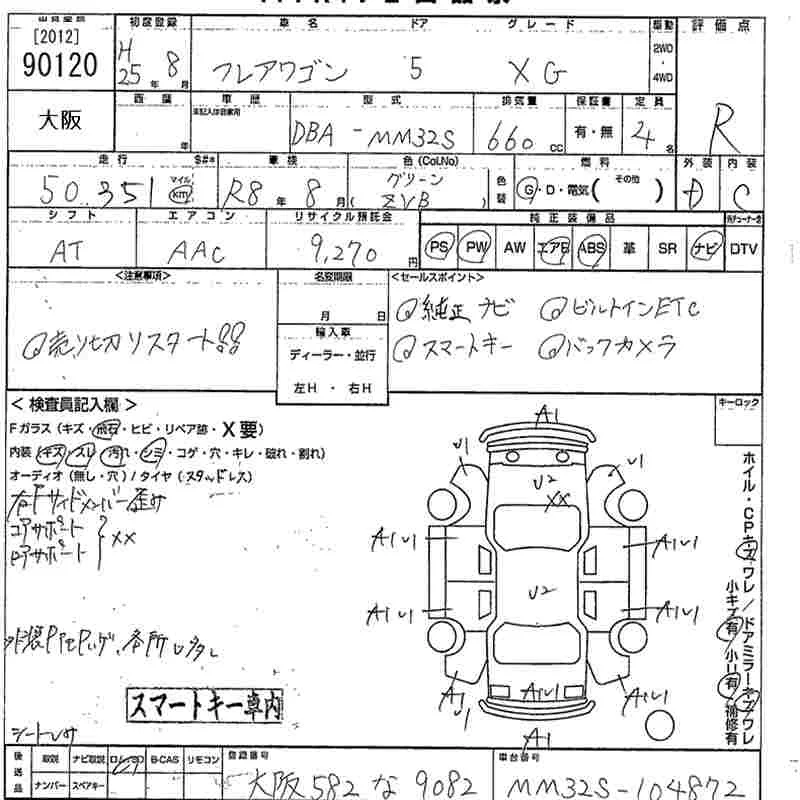 [2012]
90120
大阪
初度登録
H 25年 8月
車名 ドア グレード
フレアワゴン 5 XG
駆動
2WD
・
4WD
評価点
R
車歴
型式
DBA-MM32S
排気量
660 cc
保証書
有・無
定員
4名
走行
50,351
マイル
km
車検
R8年 8月
色(Col.No)
グリーン
( ZVB )
色替
燃料
G・D・電気( その他 )
外装
D
内装
C
シフト
AT
エアコン
AAC
リサイクル預託金
9,270円
純正装備品
PS PW AW エアB ABS 革 SR ナビ DTV
<注意事項>
売り切りスタート!!
名変期限
月 日
輸入車
ディーラー・並行
左H・右H
<セールスポイント>
純正ナビ ビルトインETC
スマートキー バックカメラ
<検査員記入欄>
Fガラス(キズ・飛石・ヒビ・リペア跡・X要)
内装(キズ・スレ・汚れ・シミ・コゲ・穴・キレ・破れ・割れ)
オーディオ(無し・穴)/タイヤ(スタッドレス)
右Fサイドメンバー歪み
コアサポート
XX
各所
スマートキー車内
キーロック
ホイル・CPキズワレ/ドアミラーキズワレ
小キズ有 小U有 補修有
A1
U1 U1
U2
XX
A1U1 A1U1
U2
A1U1 A1U1
A1
U1
A1U1 A1U1
A1
後送品
取説 ナビ取説 B-CAS リモコン
ナンバー スペアキー
登録番号
大阪 582 な 9082
車台番号
MM32S-104872